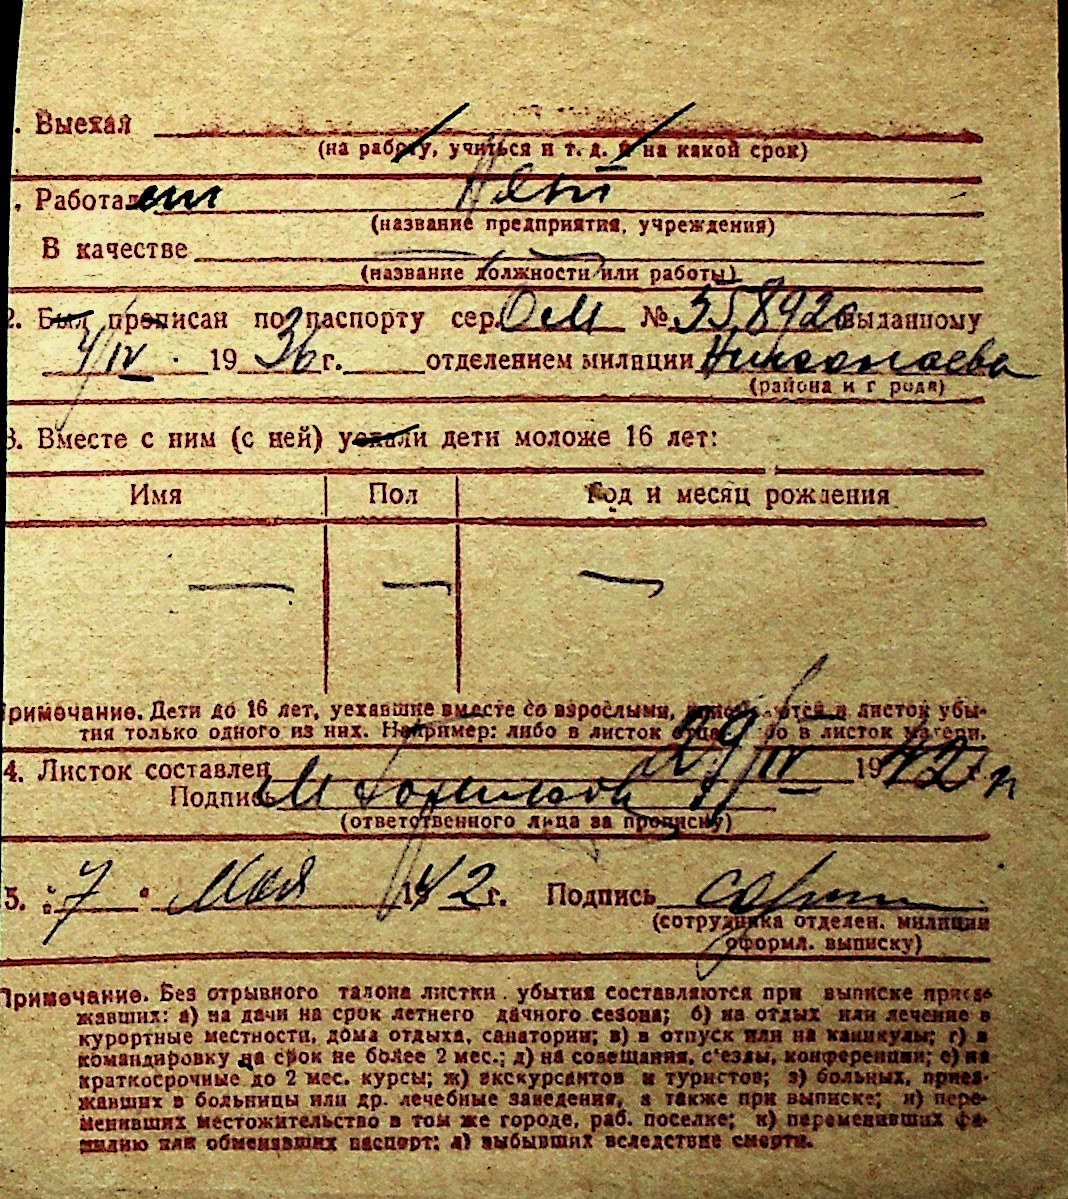 . Выехал
(на работу, учиться и т. д. и на какой срок)
. Работал Нет
(название предприятия, учреждения)
В качестве
(название должности или работы)
2. Был прописан по паспорту сер. ОМ № 558926 выданному
4/IV 1936 г. отделением милиции Николаева
(района и г рода)
3. Вместе с ним (с ней) уехали дети моложе 16 лет:
Имя Пол Год и месяц рождения
— — —
римечание. Дети до 16 лет, уехавшие вместе со взрослыми, в листок убы-
тия только одного из них. Например: либо в листок отца в листок матери.
4. Листок составлен 29/IV 1942
Подпись
(ответственного лица за прописку)
5. „7“ Мая 1942 г. Подпись
(сотрудника отделен. милиции
оформл. выписку)
Примечание. Без отрывного талона листки убытия составляются при выписке приез-
жавших: а) на дачи на срок летнего дачного сезона; б) на отдых или лечение в
курортные местности, дома отдыха, санатории; в) в отпуск или на каникулы; г) в
командировку на срок не более 2 мес.; д) на совещания, с'езды, конференции; е) на
краткосрочные до 2 мес. курсы; ж) экскурсантов и туристов; з) больных, приез-
жавших в больницы или др. лечебные заведения, а также при выписке; и) пере-
менивших местожительство в том же городе, раб. поселке; к) переменивших фа-
милию или обменявших паспорт; л) выбывших вследствие смерти.